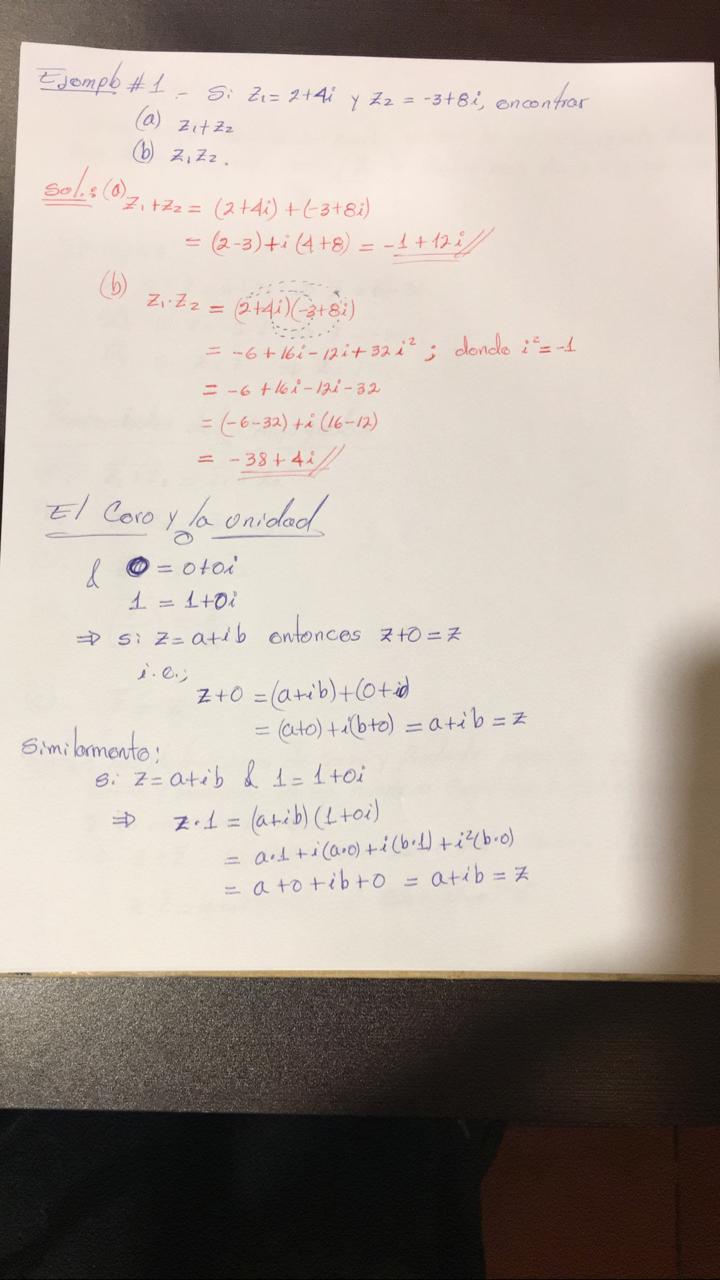 Ejemplo #1.- Si z₁ = 2+4i y z₂ = -3+8i, encontrar
(a) z₁+z₂
(b) z₁z₂.
Sol.: (a) z₁+z₂ = (2+4i)+(-3+8i)
= (2-3)+i(4+8) = -1+12i//
(b) z₁·z₂ = (2+4i)(-3+8i)
= -6+16i-12i+32i² ; donde i²=-1
= -6+16i-12i-32
= (-6-32)+i(16-12)
= -38+4i//
El Cero y la unidad
& 0 = 0+0i
1 = 1+0i
⇒ si z=a+ib entonces z+0=z
i.e.;
z+0 = (a+ib)+(0+i0)
= (a+0)+i(b+0) = a+ib = z
Similarmente:
si z=a+ib & 1=1+0i
⇒ z·1 = (a+ib)(1+0i)
= a·1+i(a·0)+i(b·1)+i²(b·0)
= a+0+ib+0 = a+ib = z